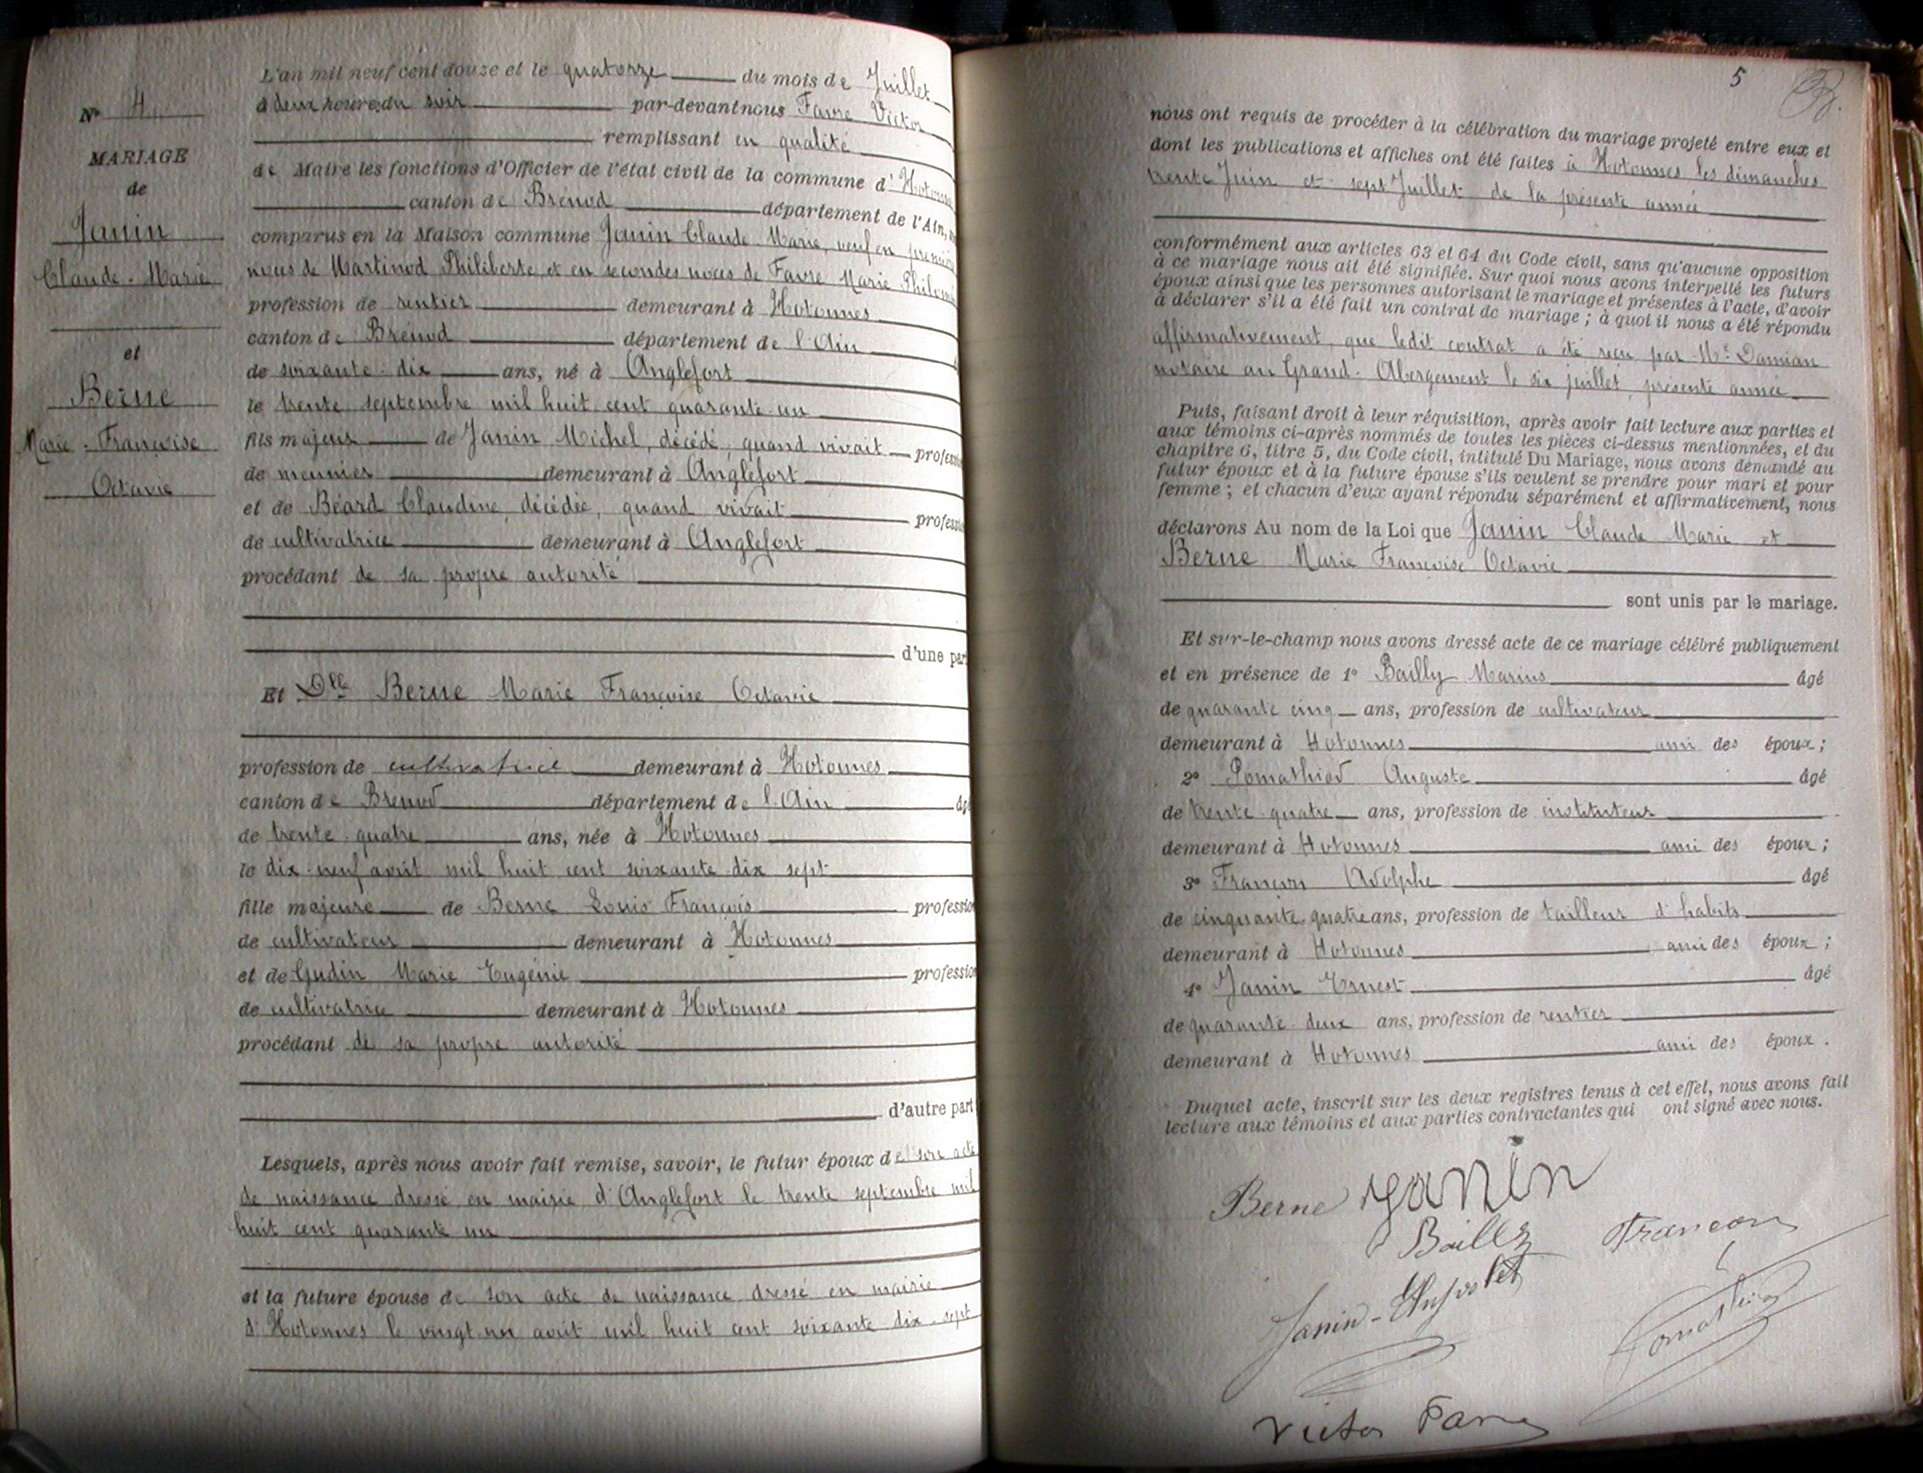 N° 4
MARIAGE
de
Janin
Claude-Marie
et
Berne
Marie-Françoise
Octavie
L'an mil neuf cent douze et le quatorze du mois de Juillet
à deux heures du soir par-devant nous Favre Victor
remplissant en qualité
de Maire les fonctions d'Officier de l'état civil de la commune d'Hotonnes
canton de Brénod département de l'Ain,
comparus en la Maison commune Janin Claude Marie, veuf en premières
noces de Martinod Philiberte et en secondes noces de Favre Marie
profession de rentier demeurant à Hotonnes
canton de Brénod département de l'Ain
de soixante-dix ans, né à Anglefort
le trente septembre mil huit cent quarante un
fils majeur de Janin Michel, décédé, quand vivait profession
de meunier demeurant à Anglefort
et de Béard Claudine, décédée, quand vivait profession
de cultivatrice demeurant à Anglefort
procédant de sa propre autorité
d'une part
Et Dlle Berne Marie Françoise Octavie
profession de cultivatrice demeurant à Hotonnes
canton de Brénod département de l'Ain âgé
de trente-quatre ans, née à Hotonnes
le dix-neuf août mil huit cent soixante dix sept
fille majeure de Berne Louis François profession
de cultivateur demeurant à Hotonnes
et de Gudin Marie Eugénie profession
de cultivatrice demeurant à Hotonnes
procédant de sa propre autorité
d'autre part
Lesquels, après nous avoir fait remise, savoir, le futur époux de son acte
de naissance dressé en mairie d'Anglefort le trente septembre mil
huit cent quarante un
et la future épouse de son acte de naissance dressé en mairie
d'Hotonnes le vingt-un août mil huit cent soixante-dix-sept
5
nous ont requis de procéder à la célébration du mariage projeté entre eux et
dont les publications et affiches ont été faites à Hotonnes les dimanches
trente Juin et sept Juillet de la présente année
conformément aux articles 63 et 64 du Code civil, sans qu'aucune opposition
à ce mariage nous ait été signifiée. Sur quoi nous avons interpellé les futurs
époux ainsi que les personnes autorisant le mariage et présentes à l'acte, d'avoir
à déclarer s'il a été fait un contrat de mariage ; à quoi il nous a été répondu
affirmativement, que ledit contrat a été reçu par Me Damian
notaire au Grand-Abergement le six juillet, présente année
Puis, faisant droit à leur réquisition, après avoir fait lecture aux parties et
aux témoins ci-après nommés de toutes les pièces ci-dessus mentionnées, et du
chapitre 6, titre 5, du Code civil, intitulé Du Mariage, nous avons demandé au
futur époux et à la future épouse s'ils veulent se prendre pour mari et pour
femme ; et chacun d'eux ayant répondu séparément et affirmativement, nous
déclarons Au nom de la Loi que Janin Claude Marie et
Berne Marie Françoise Octavie
sont unis par le mariage.
Et sur-le-champ nous avons dressé acte de ce mariage célébré publiquement
et en présence de 1° Bailly Marius âgé
de quarante cinq ans, profession de cultivateur
demeurant à Hotonnes ami des époux ;
2° Pomathiod Auguste âgé
de trente-quatre ans, profession de instituteur
demeurant à Hotonnes ami des époux ;
3° Françon Adolphe âgé
de cinquante-quatre ans, profession de tailleur d'habits
demeurant à Hotonnes ami des époux ;
4° Janin Ernest âgé
de quarante-deux ans, profession de rentier
demeurant à Hotonnes ami des époux.
Duquel acte, inscrit sur les deux registres tenus à cet effet, nous avons fait
lecture aux témoins et aux parties contractantes qui ont signé avec nous.
Berne Janin
Bailly Françon
Janin-
Pomathiod
Victor Favre